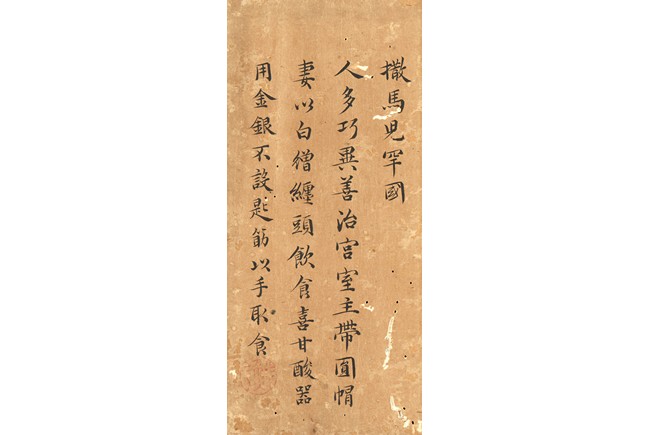 撒馬児罕國
人多巧異善治宫室主帶圎帽
妻以白繒纏頭飲食喜甘酸器
用金銀不設匙筯以手取食